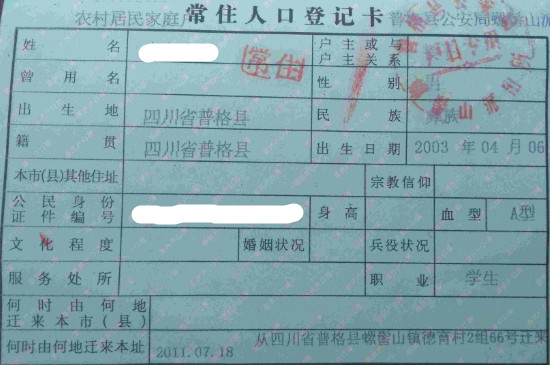 农村居民家庭户 常住人口登记卡 普格县公安局螺髻山派
姓名 户主或与户主关系
常住
曾用名 性别 男
出生地 四川省普格县 民族 彝族
籍贯 四川省普格县 出生日期 2003 年 04 月 06
本市(县)其他住址 宗教信仰
公民身份证件编号 身高 血型 A型
文化程度 婚姻状况 兵役状况
服务处所 职业 学生
何时由何地迁来本市(县)
何时由何地迁来本址 2011.07.18 从四川省普格县螺髻山镇德育村2组66号迁来